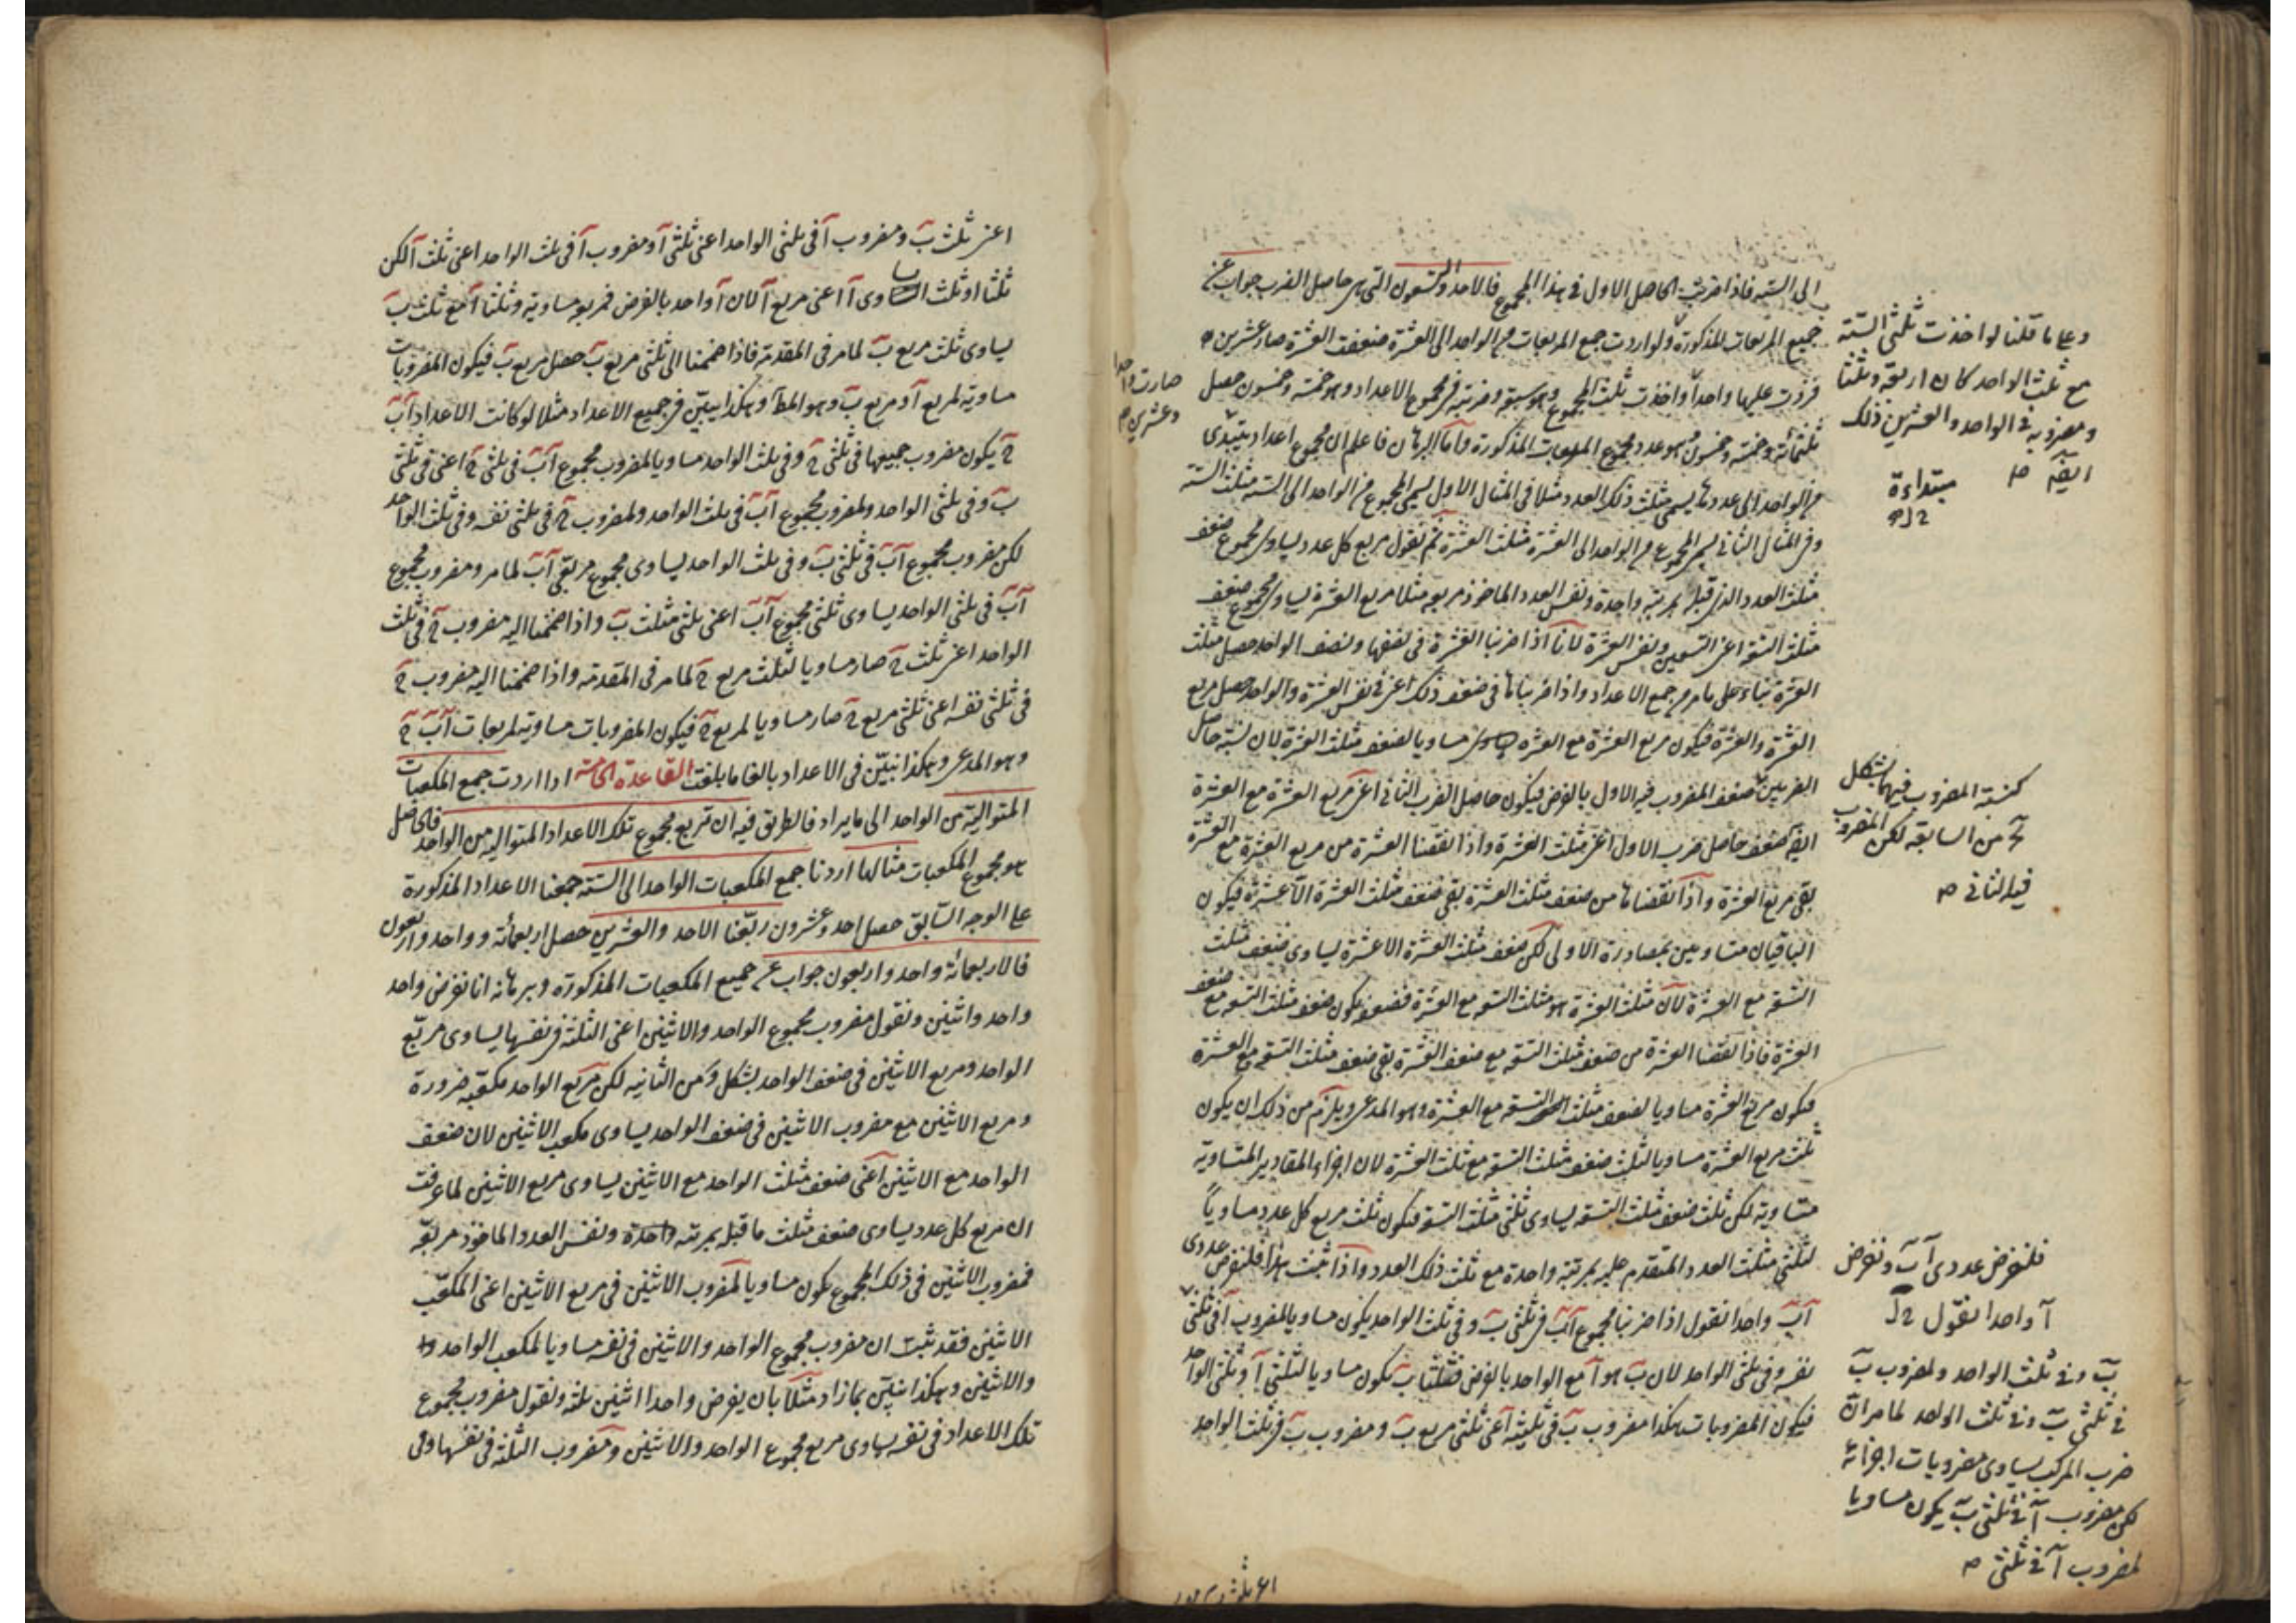 الى الستة فاذا ضربت الحاصل الاول فى هذا المجموع فالاحد والتسعون التى هى حاصل الضرب جواب عن
جميع المربعات المذكورة ولو اردت جمع المربعات من الواحد الى العشرة ضعفت العشرة صار عشرين
فزدت عليها واحداً واخذت ثلث المجموع وهو سبعة وضربته فى مجموع الاعداد وهو خمسة وخمسون حصل
ثلثمائة وخمسة وخمسون هو عدد مجموع المربعات المذكورة واما البرهان فاعلم ان مجموع اعداد يبتدى
من الواحد الى عدد ما يسمى مثلث ذلك العدد مثلا فى المثال الاول يسمى المجموع من الواحد الى الستة مثلث الستة
وفى المثال الثانى يسمى المجموع من الواحد الى العشرة مثلث العشرة ثم نقول مربع كل عدد يساوى مجموع ضعف
مثلث العدد الذى قبله بمرتبة واحدة ونفس العدد الماخوذ مربعه مثلا مربع العشرة يساوى مجموع ضعف
مثلث التسعة اعنى التسعين ونفس العشرة لانا اذا ضربنا العشرة فى نصفها ونصف الواحد حصل مثلث
العشرة بناء على ما مر من جمع الاعداد واذا ضربناها فى ضعف ذلك اعنى فى نفس العشرة والواحد حصل مربع
العشرة والعشرة فيكون مربع العشرة مع العشرة مساويا لضعف مثلث العشرة لان نسبة حاصل
الضربين ضعف المضروب فيه الاول بالفرض فيكون حاصل الضرب الثانى اعنى مربع العشرة مع العشرة
ايضا ضعف حاصل ضرب الاول اعنى مثلث العشرة واذا نقصنا العشرة من مربع العشرة مع العشرة
بقى مربع العشرة واذا نقصناها من ضعف مثلث العشرة بقى ضعف مثلث العشرة الا عشرة فيكون
الباقيان متساويين بمصادرة الاولى لكن ضعف مثلث العشرة الا عشرة يساوى ضعف مثلث
التسعة مع العشرة لان مثلث العشرة هو مثلث التسعة مع العشرة فضعفه يكون ضعف مثلث التسعة مع ضعف
العشرة فاذا نقصنا العشرة من ضعف مثلث التسعة مع ضعف العشرة بقى ضعف مثلث التسعة مع العشرة
فيكون مربع العشرة مساويا لضعف مثلث التسعة مع العشرة وهو المدعى ويلزم من ذلك ان يكون
ثلث مربع العشرة مساويا لثلث ضعف مثلث التسعة مع ثلث العشرة لان اجزاء المقادير المتساوية
متساوية لكن ثلث ضعف مثلث التسعة يساوى ثلثى مثلث التسعة فيكون ثلث مربع كل عدد مساوياً
لثلثى مثلث العدد المتقدم عليه بمرتبة واحدة مع ثلث ذلك العدد واذا ثبت هذا فلنفرض عددى
آب واحدا نقول اذا ضربنا مجموع آب فى ثلثى ب وفى ثلث الواحد يكون مساويا لمضروب آ فى ثلثى
نفسه وفى ثلثى الواحد لان ب هو آ مع الواحد بالفرض فثلثا ب يكون مساويا لثلثى آ وثلثى الواحد
فيكون المضروبات هكذا مضروب ب فى ثلثيه اعنى ثلثى مربع ب ومضروب ب فى ثلث الواحد
وعلى ما قلنا لو اخذت ثلثى الستة
مع ثلث الواحد كان اربعة وثلثا
ومضروبه فى الواحد والعشرين ذلك
ايضا
مبتداءة
صارت واحدا
وعشرين
كنسبة المضروب فيهما بشكل
من السابعة لكن المضروب
فيه الثانى
فلنفرض عددى آب ونفرض
آ واحدا نقول
ب وفى ثلث الواحد ولمضروب ب
فى ثلثى ب وفى ثلث الواحد لما مر ان
ضرب المركب يساوى مضروبات اجزائه
لكن مضروب آ فى ثلثى ب يكون مساويا
لمضروب آ فى ثلثى
اعنى ثلث ب ومضروب آ فى ثلثى الواحد اعنى ثلثى آ ومضروب آ فى ثلث الواحد اعنى ثلث آ لكن
ثلثا وثلث آ يساوى آ اعنى مربع آ لان آ واحد بالفرض فمربعه مساويه وثلثا آ مع ثلث ب
يساوى ثلث مربع ب لما مر فى المقدمة فاذا ضممنا الى ثلثى مربع ب حصل مربع ب فيكون المضروبات
مساوية لمربع آ ومربع ب وهو المط وهكذا يبيّن فى جميع الاعداد مثلا لو كانت الاعداد آب
ج يكون مضروب جميعها فى ثلثى ج وفى ثلث الواحد مساويا لمضروب مجموع آب فى ثلثى ج اعنى فى ثلثى
ب وفى ثلثى الواحد ولمضروب مجموع آب فى ثلث الواحد ولمضروب ج فى ثلثى نفسه وفى ثلث الواحد
لكن مضروب مجموع آب فى ثلثى ب وفى ثلث الواحد يساوى مجموع مربعى آب لما مر ومضروب مجموع
آب فى ثلثى الواحد يساوى ثلثى مجموع آب اعنى ثلثى مثلث ب واذا ضممنا اليه مضروب ج فى ثلث
الواحد اعنى ثلث ج صار مساويا لثلث مربع ج لما مر فى المقدمة واذا ضممنا اليه مضروب ج
فى ثلثى نفسه اعنى ثلثى مربع ج صار مساويا لمربع ج فيكون المضروبات مساوية لمربعات آب ج
وهو المدعى وهكذا نبيّن فى الاعداد بالغا ما بلغت القاعدة الخامسة اذا اردت جمع المكعبات
المتوالية من الواحد الى ما يراد فالطريق فيه ان تربع مجموع تلك الاعداد المتوالية من الواحد فالحاصل
هو مجموع المكعبات مثالها اردنا جمع المكعبات الواحد الى الستة جمعنا الاعداد المذكورة
على الوجه السابق حصل احد وعشرون ربّعنا الاحد والعشرين حصل اربعمائة وواحد واربعون
فالاربعمائة واحد واربعون جواب عن جميع المكعبات المذكورة وبرهانه انا نفرض واحد
واحد واثنين ونقول مضروب مجموع الواحد والاثنين اعنى الثلثة فى نفسها يساوى مربّع
الواحد ومربع الاثنين فى ضعف الواحد بشكل د من الثانيه لكن مربع الواحد مكعبه ضرورة
ومربع الاثنين مع مضروب الاثنين فى ضعف الواحد يساوى مكعب الاثنين لان ضعف
الواحد مع الاثنين اعنى ضعف مثلث الواحد مع الاثنين يساوى مربع الاثنين لما عرفت
ان مربع كل عدد يساوى ضعف مثلث ما قبله بمرتبة واحدة ونفس العدد الماخوذ مربعه
فمضروب الاثنين فى ذلك المجموع يكون مساويا لمضروب الاثنين فى مربع الاثنين اعنى المكعب
الاثنين فقد ثبت ان مضروب مجموع الواحد والاثنين فى نفسه مساويا لمكعب الواحد
والاثنين وهكذا نبيّن بما زاد مثلا بان يفرض واحدا اثنين ثلثة ونقول مضروب مجموع
تلك الاعداد فى نفسه يساوى مربع مجموع الواحد والاثنين ومضروب الثلثة فى نفسها وفى